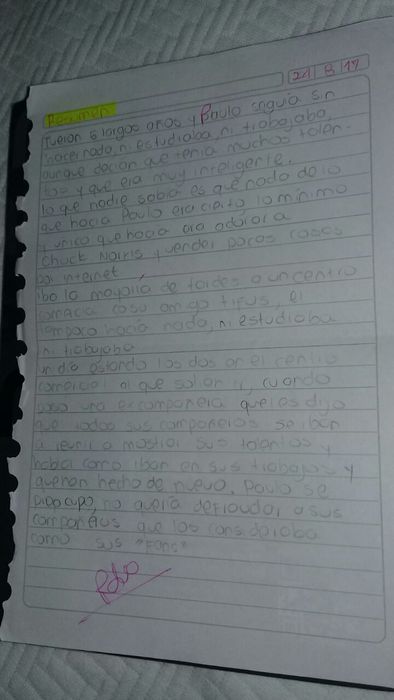 24 8 17
Resumen
Fueron 5 largos años y Paulo seguia sin
hacer nada, ni estudiaba, ni trabajaba,
aunque decian que tenia muchos talen-
tos y que era muy inteligente.
lo que nadie sabia es que nada de lo
que hacia Paulo era cierto lo minimo
y unico que hacia era adorar a
Chuck Norris y vender pocas cosas
por internet
iba la mayoria de tardes a un centro
comercial con su amigo tifus, el
tampoco hacia nada, ni estudiaba
ni trabajaba
un dia estando los dos en el centro
comercial al que salian, cuando
paso una excompañera que les dijo
que todos sus compañeros se iban
a reunir a mostrar sus talentos y
hablar como iban en sus trabajos y
que han hecho de nuevo. Paulo se
preocupo, no queria defraudar a sus
compañeros que los consideraba
como sus "Fans"